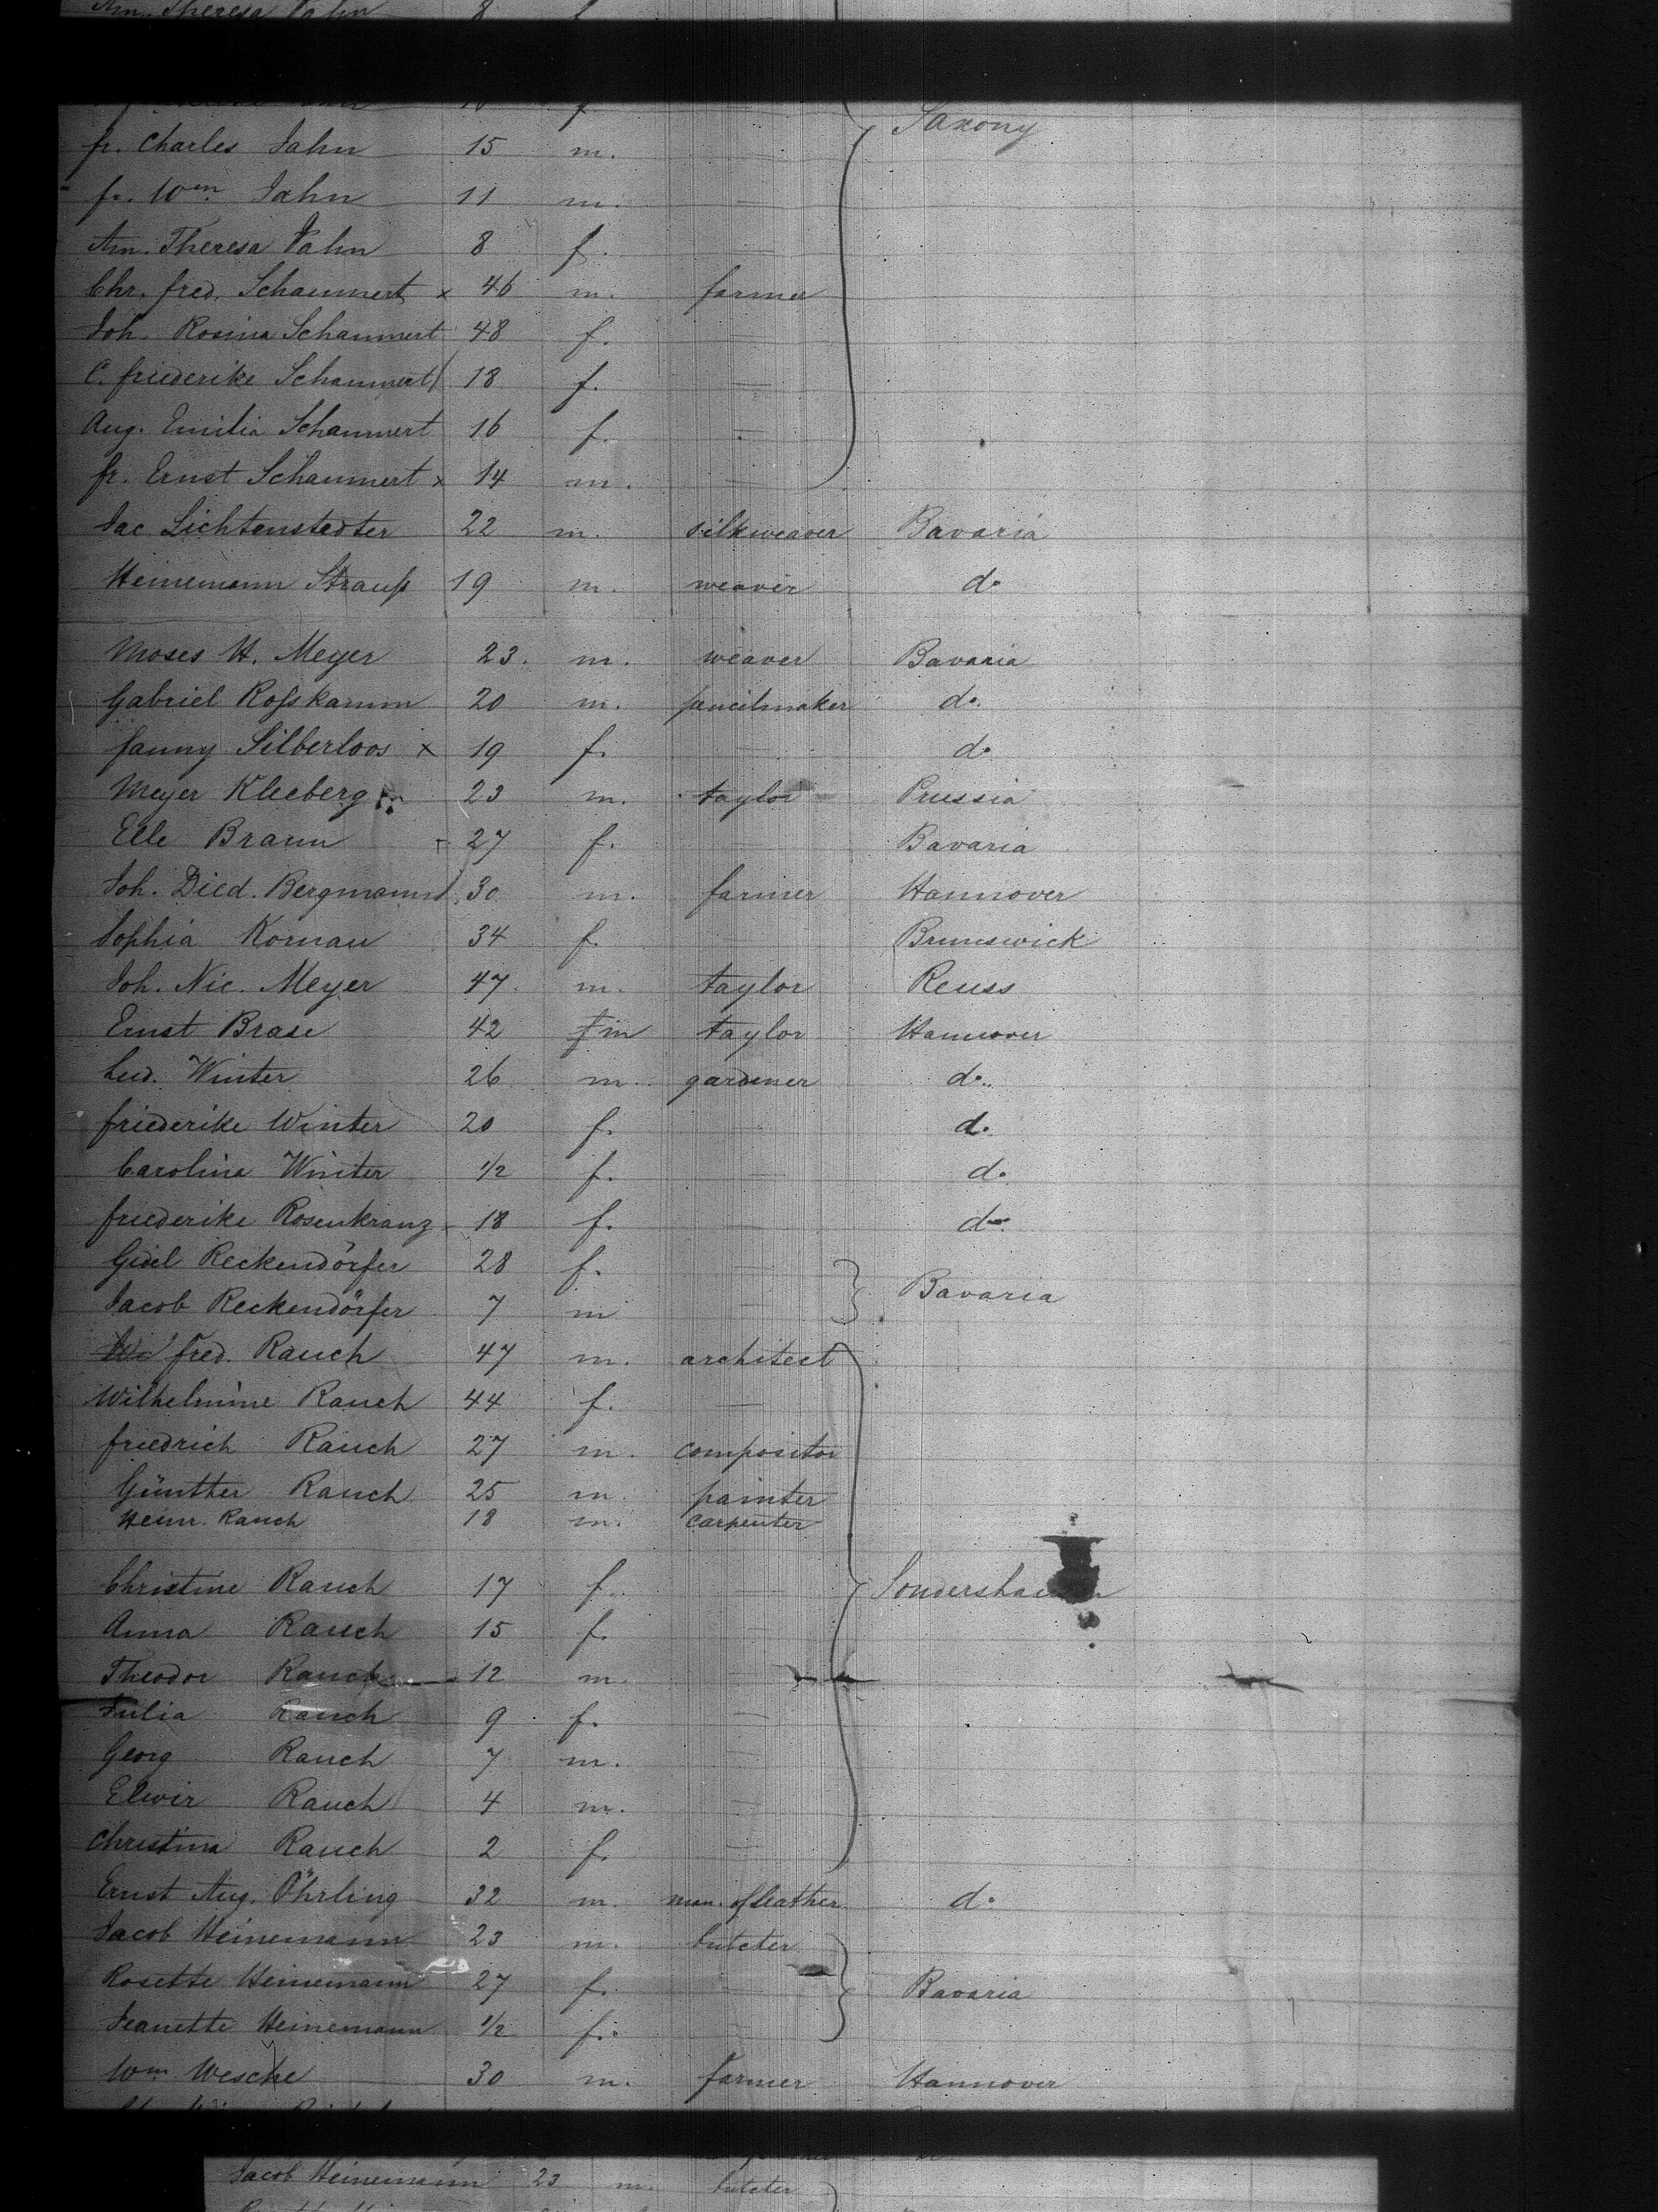 Am. Theresa Jahn 8 f
fr. Charles Jahn 15 m. — Saxony
fr. Wm. Jahn 11 m. —
Am. Theresa Jahn 8 f. —
Chr. fred. Schaumert x 46 m. farmer
Joh. Rosina Schaumert 48 f. —
C. friederike Schaumert 18 f. —
Aug. Emilia Schaumert 16 f. —
fr. Ernst Schaumert x 14 m. —
Jac Lichtenstedter 22 m. silkweaver Bavaria
Heinemann Strauß 19 m. weaver do
Moses H. Meyer 23. m. weaver Bavaria
Gabriel Roßkamm 20 m. pencilmaker do.
fanny Silberloos x 19 f. — do
Meyer Kleeberg 23 m. taylor Prussia
Elle Braun 27 f. — Bavaria
Joh. Died. Bergmann 30 m. farmer Hannover
Sophia Kornau 34 f. — Brunswick
Joh. Nic. Meyer 47. m. taylor Reuss
Ernst Brase 42 f m taylor Hannover
Lud. Winter 26 m. gardener do.
friederike Winter 20 f. — do.
Carolina Winter 1/2 f. — do
friederike Rosenkranz 18 f. — do.
Gidel Reckendörfer 28 f. —
Jacob Reckendörfer 7 m — Bavaria
fred. Rauch 47 m. architect
Wilhelmine Rauch 44 f. —
friedrich Rauch 27 m. compositor
Günther Rauch 25 m painter
Heinr. Rauch 18 m. carpenter
Christine Rauch 17 f. —
Anna Rauch 15 f. —
Theodor Rauch 12 m.
Julia Rauch 9 f. —
Georg Rauch 7 m. —
Elwir Rauch 4 m. —
Christina Rauch 2 f. —
Ernst Aug. Öhrling 32 m man. of leather do
Jacob Heinemann 23 m. butcter
Rosette Heinemann 27 f. — Bavaria
Jeanette Heinemann 1/2 f. —
Wm Wesche 30 m. farmer Hannover
Jacob Heinemann 23 m. butcter